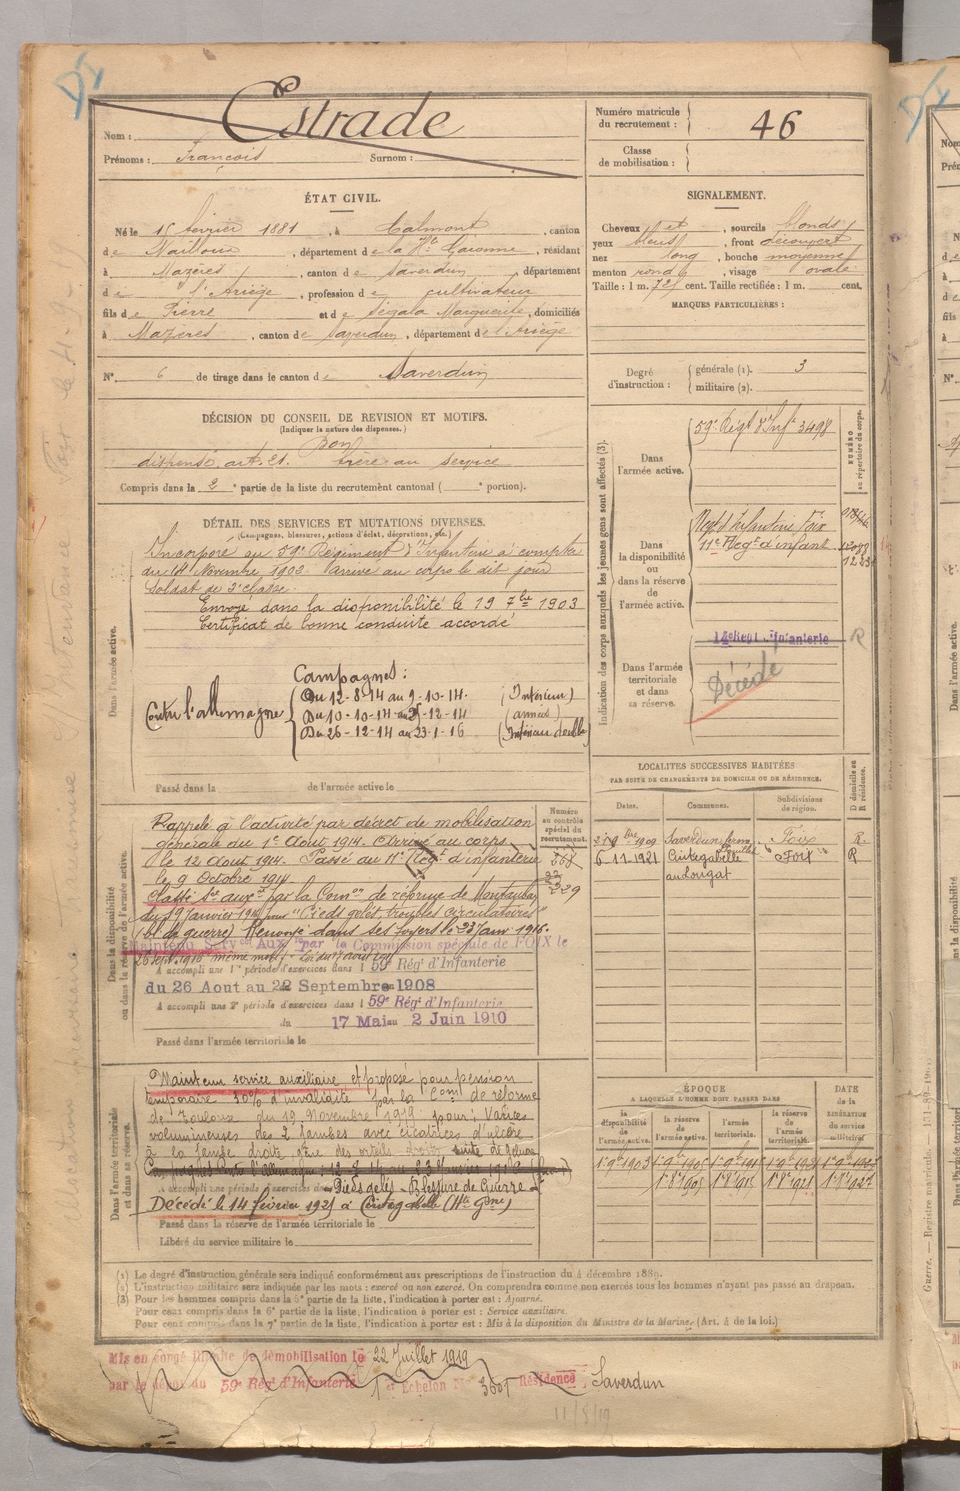 Nom : Estrade
Prénoms : François Surnom :
Numéro matricule du recrutement : 46
Classe de mobilisation :
ÉTAT CIVIL.
Né le 15 février 1881, à Calmont, canton
de Nailloux, département de la Hte Garonne, résidant
à Mazères, canton de Saverdun, département
de l'Ariège, profession de cultivateur
fils de Pierre et de Ségala Marguerite, domiciliés
à Mazères, canton de Saverdun, département de l'Ariège
N° 6 de tirage dans le canton de Saverdun
SIGNALEMENT.
Cheveux et, sourcils blonds
yeux bleus, front découvert
nez long, bouche moyenne
menton rond, visage ovale
Taille : 1 m. 72 cent. Taille rectifiée : 1 m. cent.
MARQUES PARTICULIÈRES :
Degré d'instruction : générale (1). 3
militaire (2).
DÉCISION DU CONSEIL DE REVISION ET MOTIFS.
(Indiquer la nature des dispenses.)
Bon
dispensé art. 21. frère au service
Compris dans la 2e partie de la liste du recrutement cantonal ( e portion).
DÉTAIL DES SERVICES ET MUTATIONS DIVERSES.
(Campagnes, blessures, actions d'éclat, décorations, etc.)
Dans l'armée active.
Incorporé au 59e Régiment d'Infanterie à compter
du 14 Novembre 1902. arrivé au corps le dit jour
soldat de 2e classe.
Envoyé dans la disponibilité le 19 7bre 1903
Certificat de bonne conduite accordé
Campagnes :
Contre l'allemagne
Du 12-8-14 au 9-10-14. (Intérieur)
Du 10-10-14 au 25-12-14 (armées)
Du 26-12-14 au 23-1-16 (Intérieur double)
Passé dans la de l'armée active le
Indication des corps auxquels les jeunes gens sont affectés (3).
NUMÉRO au répertoire du corps.
Dans l'armée active.
59e Régt d'Infie 3498
Dans la disponibilité ou dans la réserve de l'armée active.
Regt d'Infanterie Foix
11e Regt d'infant
Dans l'armée territoriale et dans sa réserve.
14e Regt d'Infanterie R
Décédé
Dans la disponibilité ou dans la réserve de l'armée active.
Numéro au contrôle spécial du recrutement.
Rappelé à l'activité par décret de mobilisation
générale du 1er Août 1914. Arrivé au corps
le 12 Août 1914. Passé au 11e Reg. d'infanterie
le 9 Octobre 1914
Classé Sce aux. par la Comon de réforme de Montauban
du 19 janvier 1916 pour "Pieds gelés, troubles circulatoires"
(bl. de guerre) Renvoyé dans ses foyers le 23 Janv 1916.
Maintenu Servce Auxre par la Commission spéciale de FOIX le
26 sept. 1916 même motif. Loi du 17 août 1915
A accompli une 1re période d'exercices dans l 59e Régt d'Infanterie
du 26 Aout au 22 Septembre 1908
A accompli une 2e période d'exercices dans l 59e Régt d'Infanterie
du 17 Mai au 2 Juin 1910
Passé dans l'armée territoriale le
LOCALITÉS SUCCESSIVES HABITÉES
PAR SUITE DE CHANGEMENTS DE DOMICILE OU DE RÉSIDENCE.
Dates. Communes. Subdivisions de région. D domicile ou R résidence.
1909 Saverdun Foix R.
6-11-1921 Cintegabelle Foix R
Dans l'armée territoriale et dans sa réserve.
Maintenu service auxiliaire et proposé pour pension
temporaire 10% d'invalidité par la Comon de réforme
de Toulouse du 19 Novembre 1919 pour : Varices
volumineuses des 2 jambes avec cicatrices d'ulcère
à la jambe droite gêne des orteils droits suite de gelure
A accompli une période d'exercices dans
Pieds gelés. Blessure de Guerre
Décédé le 14 février 1925 à Cintegabelle (Hte Gne)
Passé dans la réserve de l'armée territoriale le
Libéré du service militaire le
ÉPOQUE
A LAQUELLE L'HOMME DOIT PASSER DANS
DATE de la LIBÉRATION du service militaire
la disponibilité de l'armée active.
la réserve de l'armée active.
l'armée territoriale.
la réserve de l'armée territoriale.
1er 9bre 1905
(1) Le degré d'instruction générale sera indiqué conformément aux prescriptions de l'instruction du 4 décembre 1889.
(2) L'instruction militaire sera indiquée par les mots : exercé ou non exercé. On comprendra comme non exercés tous les hommes n'ayant pas passé au drapeau.
(3) Pour les hommes compris dans la 5e partie de la liste, l'indication à porter est : Ajourné.
Pour ceux compris dans la 6e partie de la liste, l'indication à porter est : Service auxiliaire.
Pour ceux compris dans la 7e partie de la liste, l'indication à porter est : Mis à la disposition du Ministre de la Marine. (Art. 4 de la loi.)
Mis en congé illimité de démobilisation le 22 Juillet 1919
par le dépôt du 59e Régt d'Infanterie
1er Echelon N° 3601 Résidence Saverdun
11/8/19
Guerre. — Registre matricule.